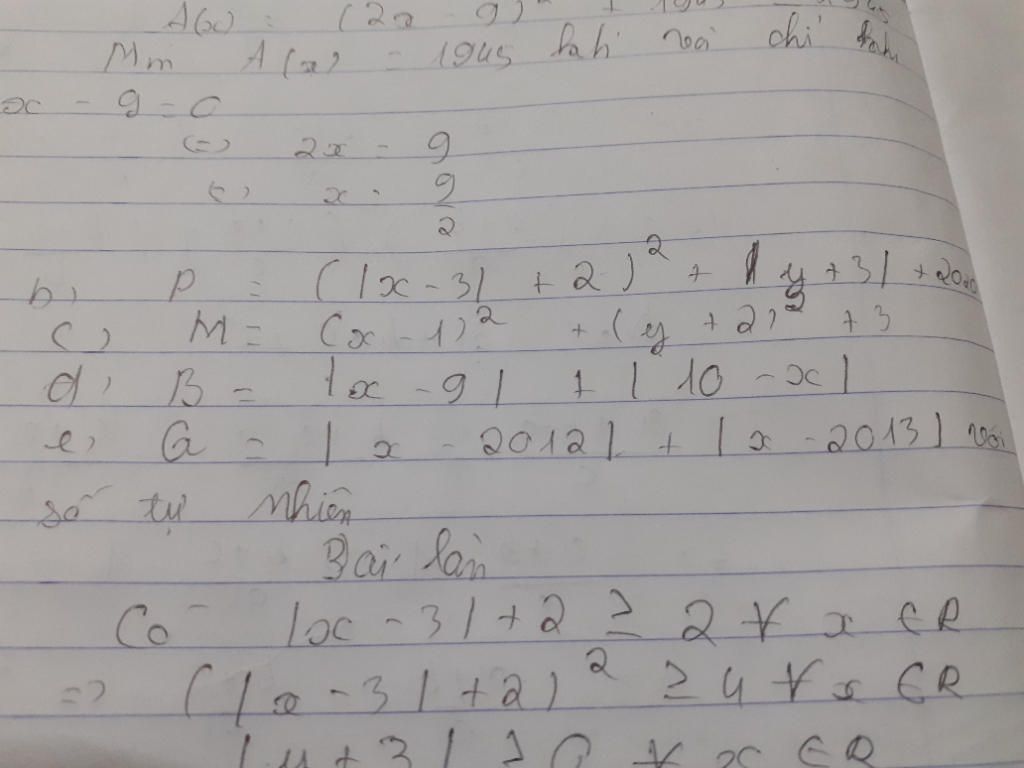 A(x) = (2x - 9)² + 1945 ≥ 1945
Min A(x) = 1945 khi và chỉ khi
x - 9 = 0
<=> 2x = 9
<=> x = 9/2
b, P = (|x - 3| + 2)² + |y + 3| + 2020
c, M = (x - 1)² + (y + 2)² + 3
d, B = |x - 9| + |10 - x|
e, G = |x - 2012| + |x - 2013| với
số tự nhiên
Bài làm
Có |x - 3| + 2 ≥ 2 ∀ x ∈ R
=> (|x - 3| + 2)² ≥ 4 ∀ x ∈ R
|y + 3| ≥ 0 ∀ x ∈ R